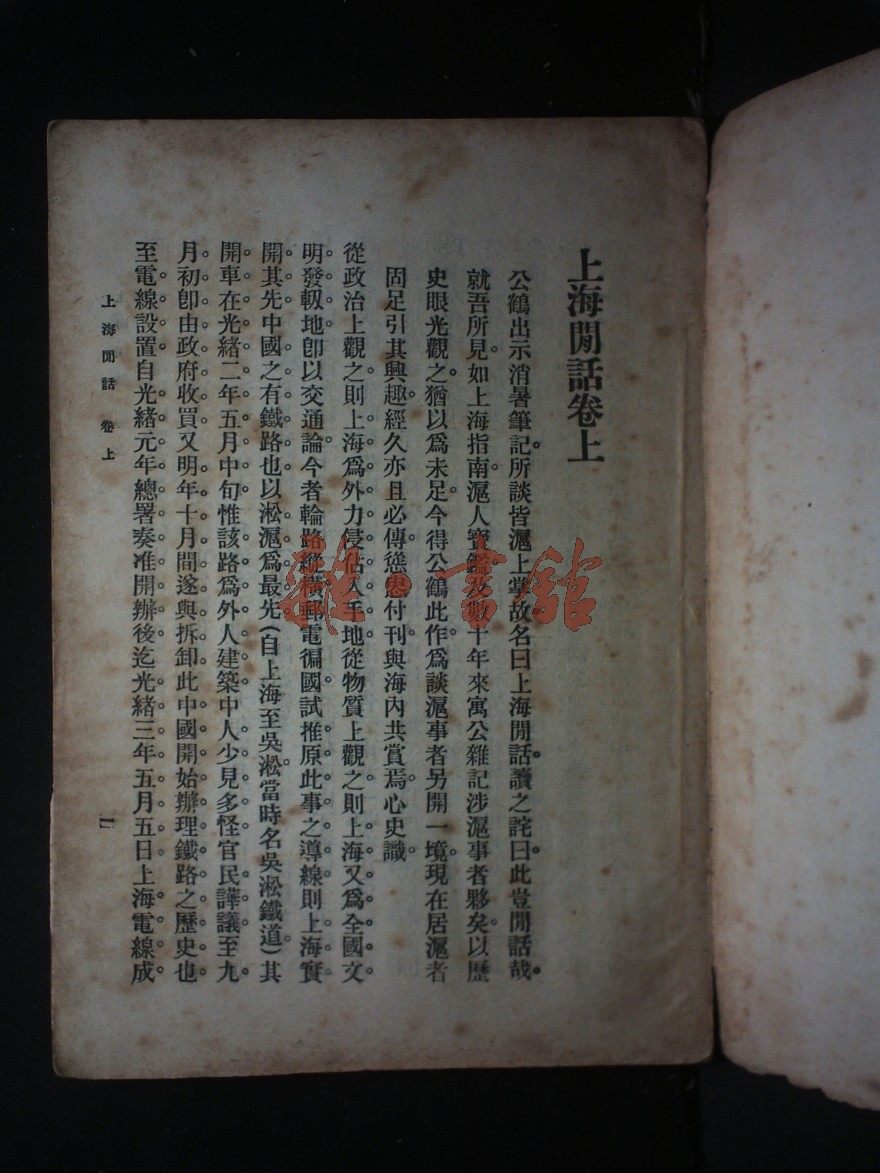 上海閒話卷上
公鶴出示消暑筆記。所談皆滬上掌故名曰上海閒話。讀之詫曰。此豈閒話哉。
就吾所見。如上海指南滬人寶鑑及數十年來寓公雜記涉滬事者夥矣。以歷
史眼光觀之。猶以爲未足。今得公鶴此作。爲談滬事者另開一境。現在居滬者
固足引其興趣。經久亦且必傳。慫恿付刊。與海內共賞焉。心史識
從政治上觀之。則上海爲外力侵佔入手地。從物質上觀之。則上海又爲全國文
明發軔地。卽以交通論。今者輪路縱橫。郵電徧國。試推原此事之導線。則上海實
開其先。中國之有鐵路也。以淞滬爲最先(自上海至吳淞。當時名吳淞鐵道)其
開車在光緒二年五月中旬。惟該路爲外人建築。中人少見多怪。官民譁議。至九
月初。卽由政府收買。又明年十月間。遂與拆卸。此中國開始辦理鐵路之歷史也。
至電線設置。自光緒元年總署奏准開辦後。迄光緒三年五月五日。上海電線成
上海閒話 卷上
一
雜·書館